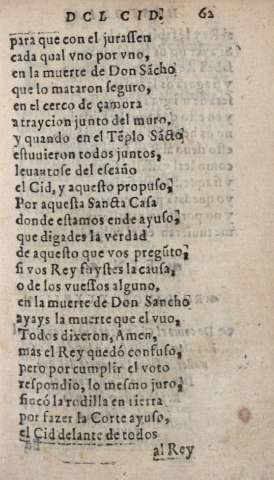 DCL CID. 62
para que con el jurassen
cada qual vno por vno,
en la muerte de Don Sãcho
que lo mataron seguro,
en el cerco de çamora
a traycion junto del muro,
y quando en el Tẽplo Sãcto
estuuieron todos juntos,
leuantose del escaño
el Cid, y aquesto propuso,
Por aquesta Sancta Casa
donde estamos ende ayuso,
que digades la verdad
de aquesto que vos pregũto,
si vos Rey fuystes la causa,
o de los vuessos alguno,
en la muerte de Don Sancho
ayays la muerte que el vuo,
Todos dixeron, Amen,
mas el Rey quedó confuso,
pero por cumplir el voto
respondio, lo mesmo juro,
fincó la rodilla en tierra
por fazer la Corte ayuso,
el Cid delante de todos
al Rey